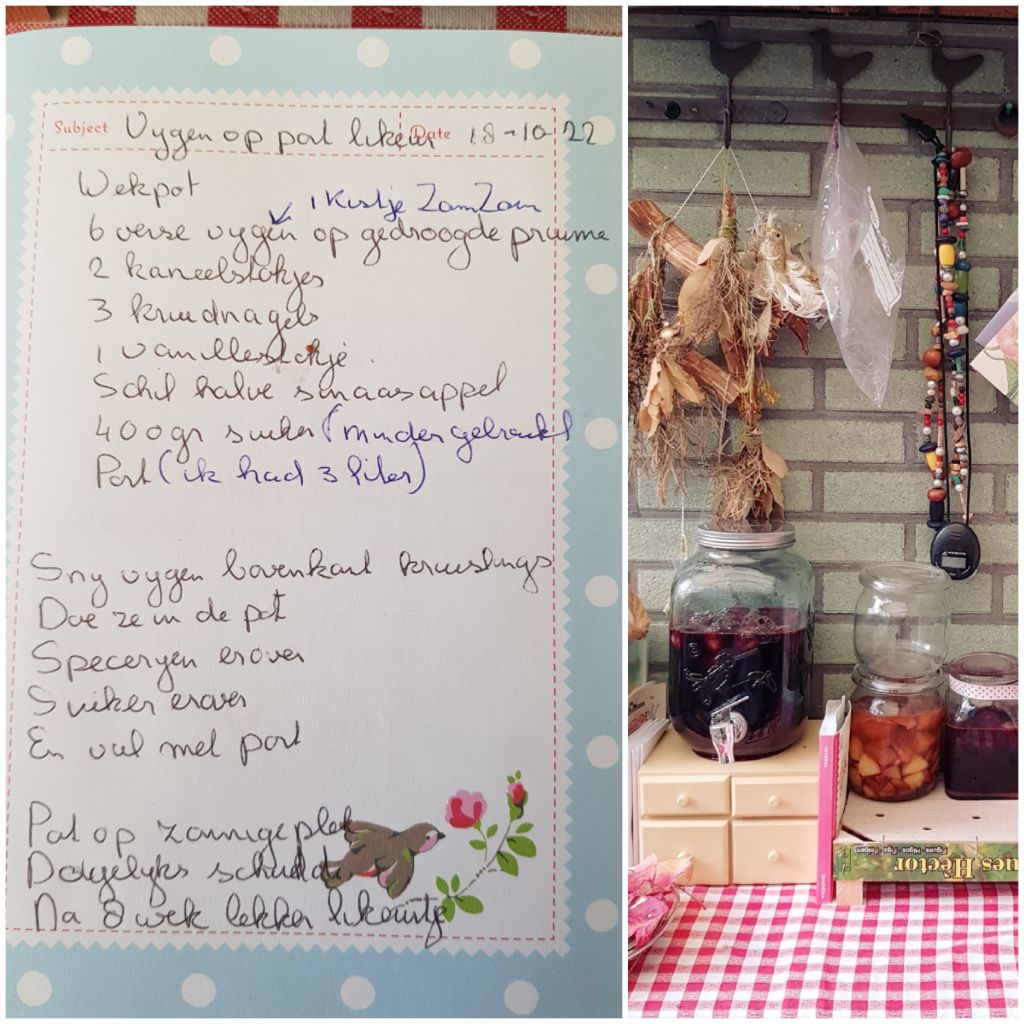 Subject Vygen op port likeur Date 18-10-22
Wekpot
1 Kistje ZamZam
6 verse vygen op gedroogde pruime
2 kaneelstokjes
3 kruidnagels
1 vanillestokje.
Schil halve sinaasappel
400gr suiker (minder gebruikt
Port (ik had 3 liter)
Sny vygen bovenkant kruislings
Doe ze in de pot
Speceryen erover
Suiker erover
En vul met port
Pot op zonnige plek
Dagelyks schudde
Na 8 wek lekker likeurtje
ues Hèctor
Figues Higos Figs Feigen